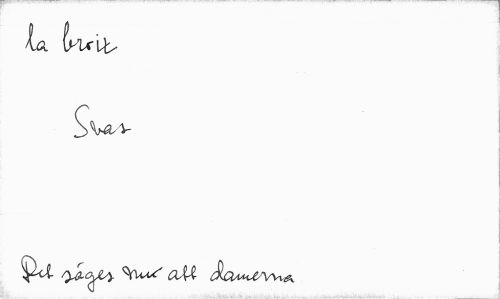 la broit
Svar
Det säges nu att damerna